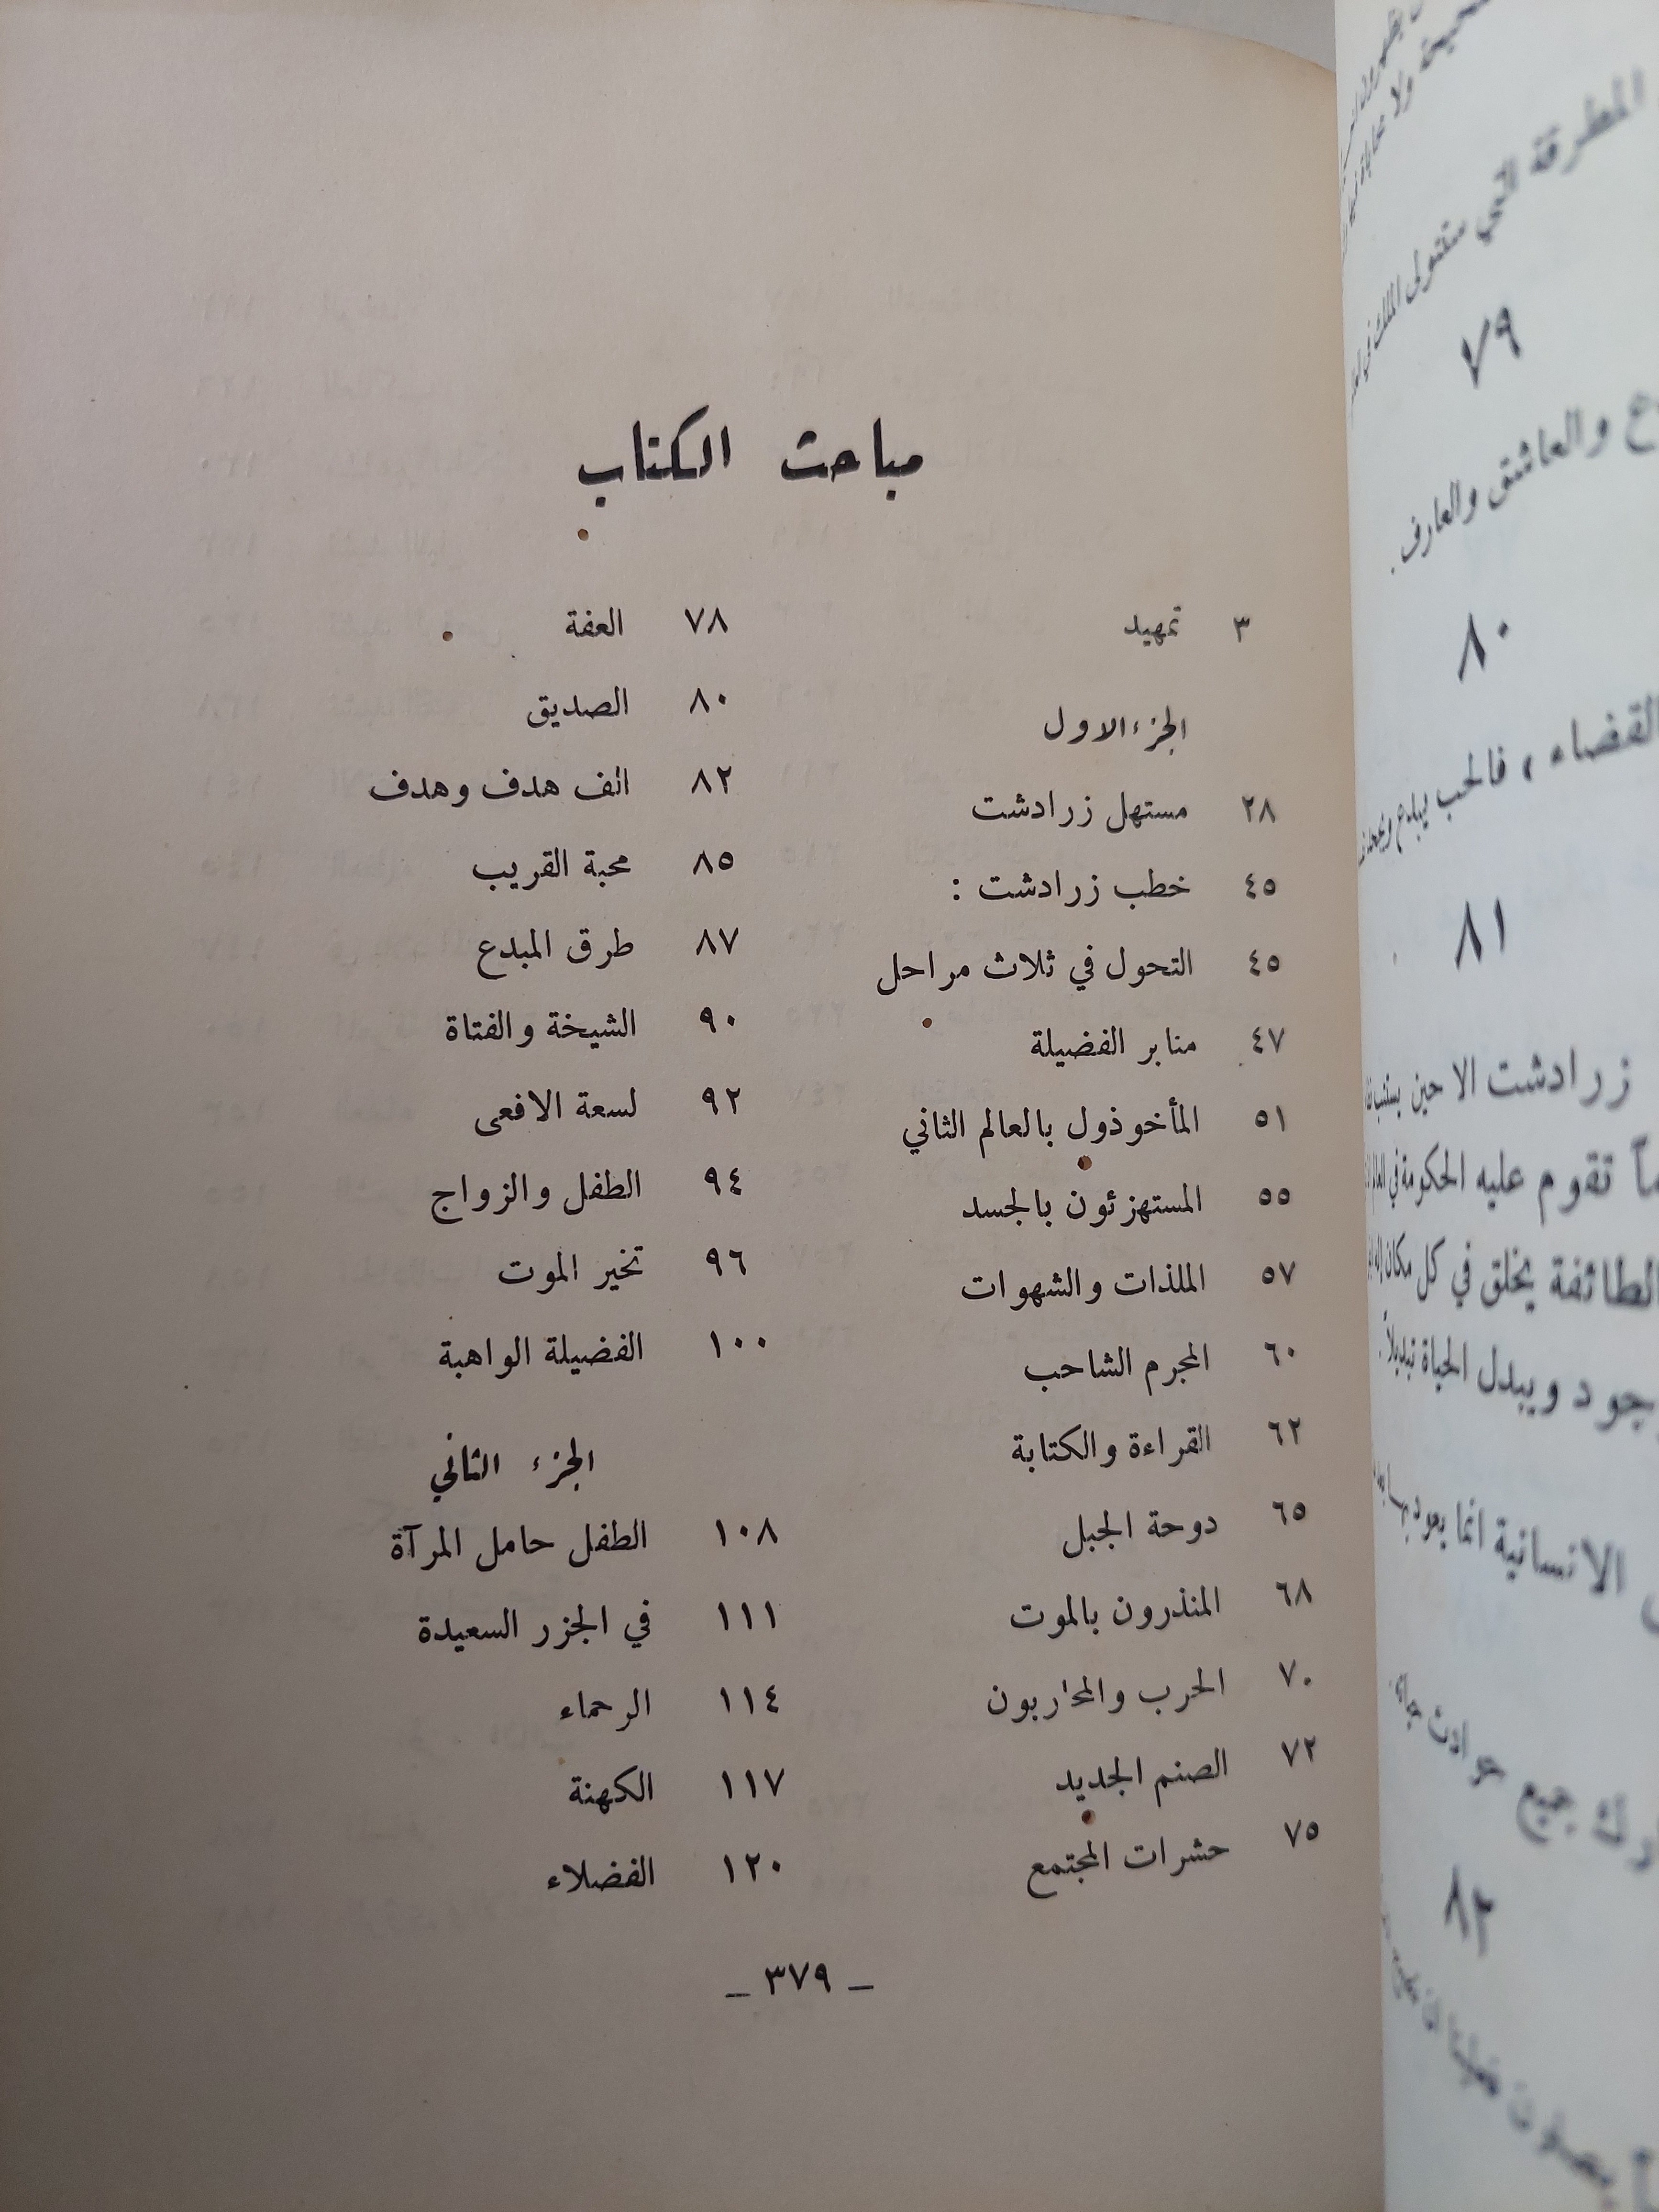 مباحث الكتاب
٣ تمهيد
الجزء الاول
٢٨ مستهل زرادشت
٤٥ خطب زرادشت :
٤٥ التحول في ثلاث مراحل
٤٧ منابر الفضيلة
٥١ المأخوذول بالعالم الثاني
٥٥ المستهزئون بالجسد
٥٧ الملذات والشهوات
٦٠ المجرم الشاحب
٦٢ القراءة والكتابة
٦٥ دوحة الجبل
٦٨ المنذرون بالموت
٧٠ الحرب والمحاربون
٧٢ الصنم الجديد
٧٥ حشرات المجتمع
٧٨ العفة
٨٠ الصديق
٨٢ الف هدف وهدف
٨٥ محبة القريب
٨٧ طرق المبدع
٩٠ الشيخة والفتاة
٩٢ لسعة الافعى
٩٤ الطفل والزواج
٩٦ تخير الموت
١٠٠ الفضيلة الواهبة
الجزء الثاني
١٠٨ الطفل حامل المرآة
١١١ في الجزر السعيدة
١١٤ الرحماء
١١٧ الكهنة
١٢٠ الفضلاء
– ٣٧٩ –
المطرقة التي ستتولى الملك في
٧٩
والعاشق والعارف .
٨٠
القضاء ، فالحب يبدع
٨١
زرادشت الا حين
تقوم عليه الحكومة في
الطائفة يخلق في كل مكان
ويبدل الحياة تبديلاً .
الانسانية انما يعود بها
جميع حوادث
٨٢